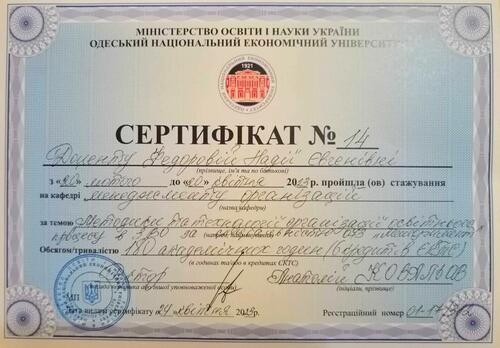 МІНІСТЕРСТВО ОСВІТИ І НАУКИ УКРАЇНИ
ОДЕСЬКИЙ НАЦІОНАЛЬНИЙ ЕКОНОМІЧНИЙ УНІВЕРСИТЕТ
1921
СЕРТИФІКАТ № 14
Доценту Федоровій Надії Євгенівні
(прізвище, ім'я та по батькові)
з «20» лютого до «20» квітня 2023р. пройшла (ов) стажування
на кафедрі менеджменту організацій
(назва кафедри)
за темою «Методика та технології організації освітнього
процесу в ЗВО за спеціальністю 073 «Менеджмент»
Обсягом/тривалістю 180 академічних годин (6 кредитів ЄКТС)
(в годинах та/або в кредитах ЄКТС)
Ректор Анатолій КОВАЛЬОВ
(посада керівника або іншої уповноваженої особи) (ініціали, прізвище)
МП
Дата видачі сертифікату «24» квітня 2023р. Реєстраційний номер